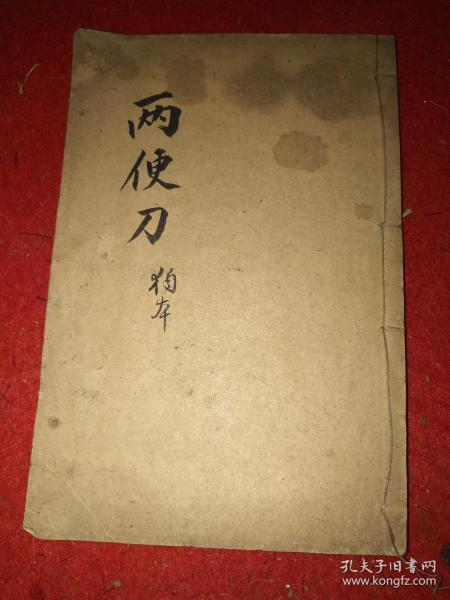 两便刀
独本
孔夫子旧书网
www.kongfz.com